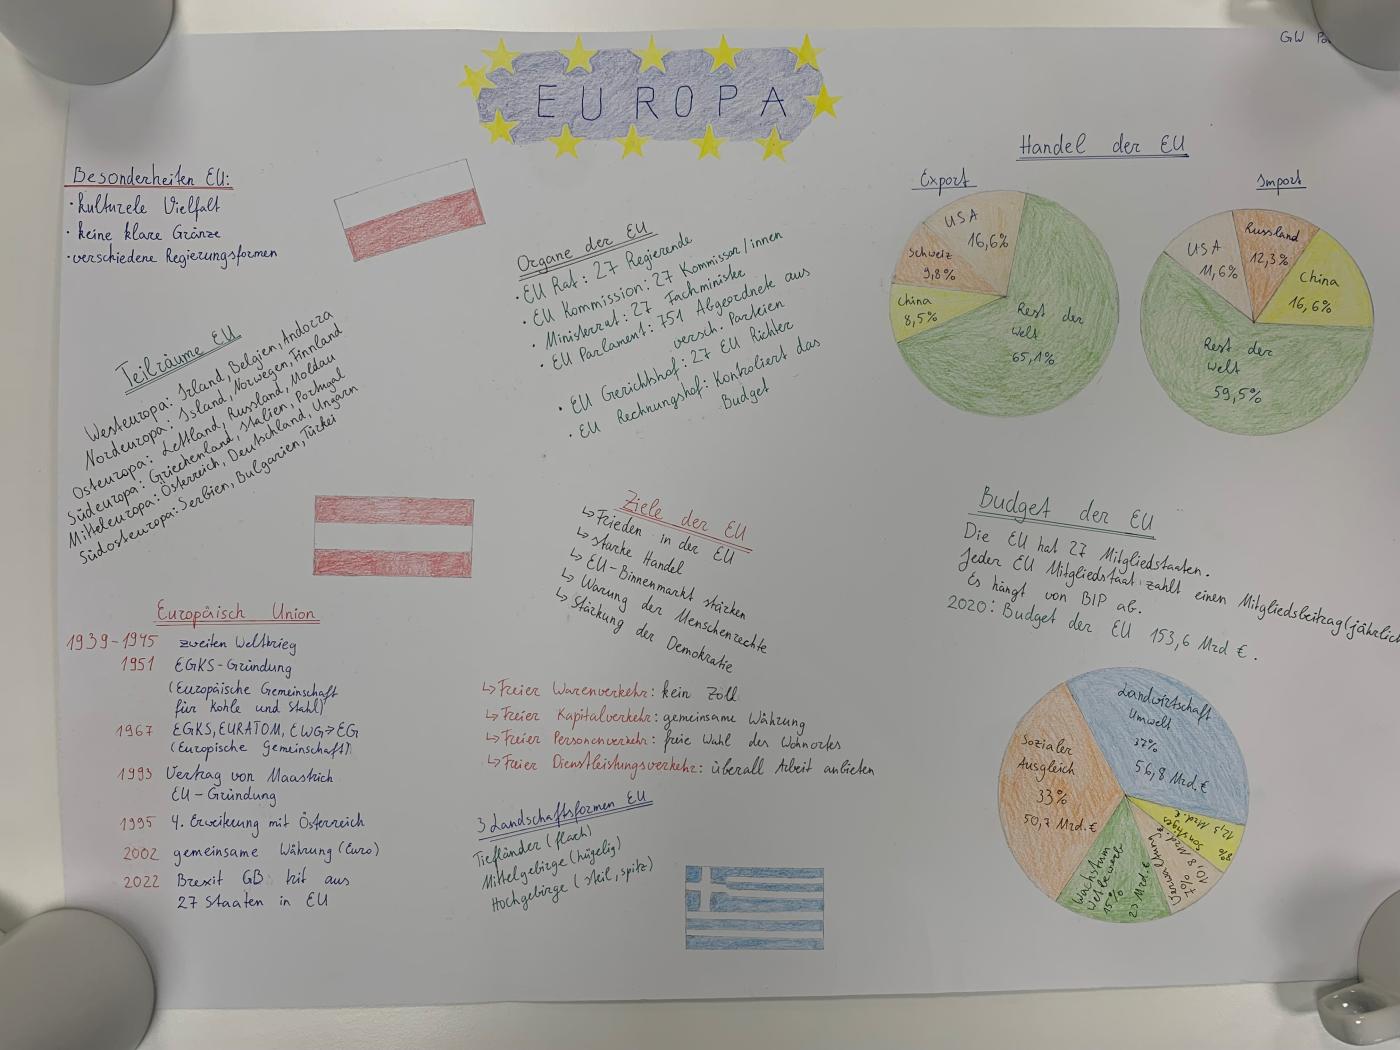 GW
EUROPA
Besonderheiten EU:
· kulturele Vielfalt
· keine klare Gränze
· verschiedene Regierungsformen
Teilräume EU
Westeuropa: Irland, Belgien, Andorra
Nordeuropa: Island, Norwegen, Finnland
Osteuropa: Lettland, Russland, Moldau
Südeuropa: Griechenland, Italien, Portugal
Mitteleuropa: Österreich, Deutschland, Ungarn
Südosteuropa: Serbien, Bulgarien, Türkei
Europäisch Union
1939-1945 zweiten Weltkrieg
1951 EGKS-Gründung
(Europäische Gemeinschaft
für Kohle und Stahl)
1967 EGKS, EURATOM, EWG→EG
(Europische Gemeinschaft)
1993 Vertrag von Maastrich
EU-Gründung
1995 4. Erweiterung mit Österreich
2002 gemeinsame Währung (Euro)
2022 Brexit GB trit aus
27 Staaten in EU
Organe der EU
· EU Rat: 27 Regierende
· EU Kommission: 27 Kommissor/innen
· Ministerrat: 27 Fachminister
· EU Parlament: 751 Abgeordnete aus
versch. Parteien
· EU Gerichtshof: 27 EU Richter
· EU Rechnungshof: Kontroliert das
Budget
Ziele der EU
↳ Frieden in der EU
↳ starke Handel
↳ EU-Binnenmarkt stärken
↳ Warung der Menschenrechte
↳ Stärkung der
Demokratie
↳ Freier Warenverkehr: kein Zoll
↳ Freier Kapitalverkehr: gemeinsame Währung
↳ Freier Personenverkehr: freie Wahl des Wohnortes
↳ Freier Dienstleistungsverkehr: überall Arbeit anbieten
3 Landschaftsformen EU
Tiefländer (flach)
Mittelgebirge (hügelig)
Hochgebirge (steil, spitz)
Handel der EU
Export
USA
16,6%
Schweiz
9,8%
China
8,5%
Rest der
Welt
65,1%
Import
USA
11,6%
Russland
12,3%
China
16,6%
Rest der
Welt
59,5%
Budget der EU
Die EU hat 27 Mitgliedstaaten.
Jeder EU Mitgliedstaat zahlt einen Mitgliedsbeitrag (jährlich
Es hängt von BIP ab.
2020: Budget der EU 153,6 Mrd €.
Landwirtschaft
Umwelt
37%
56,8 Mrd.€
Sozialer
Ausgleich
33%
50,7 Mrd.€
Wachstum
Wettbewerb
15%
23 Mrd.€
Verwaltung
7%
Sonstiges
8%
12,5 Mrd.€